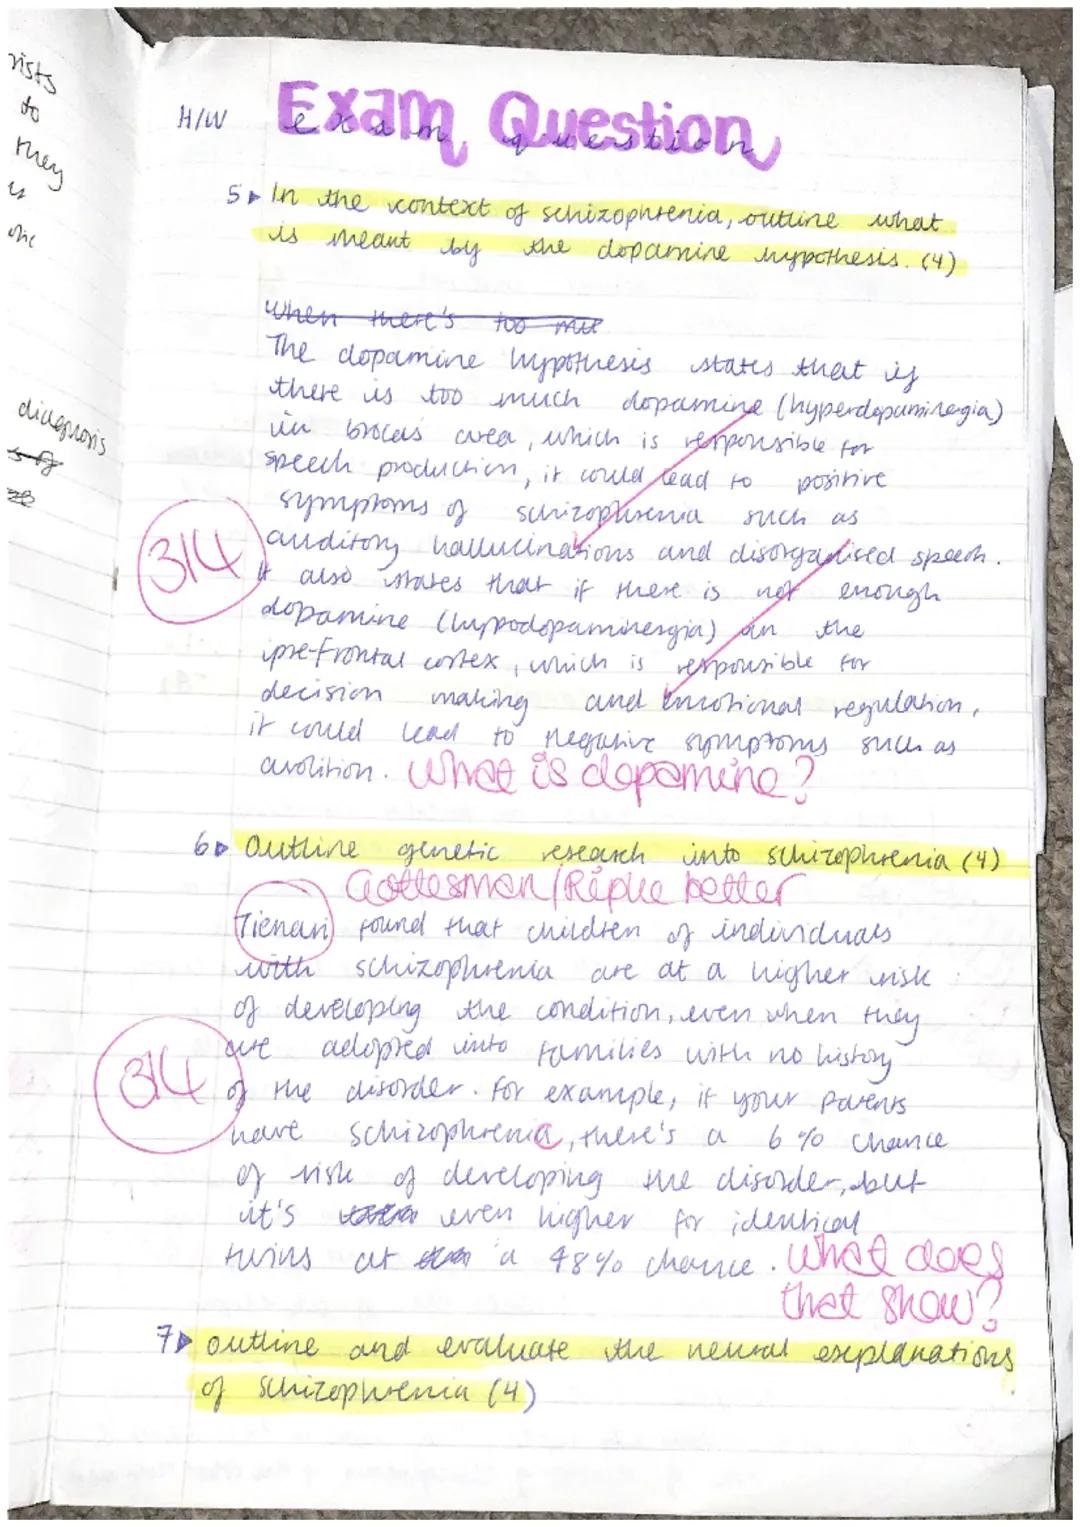 rists
to
they
is
diagnosis
H/W
Exam Question
exam question
5 In the context of schizophrenia, outline what
is meant by the dopamine hypothesis. (4)
When there's too mu
The dopamine hypothesis states that if
there is too much dopamine (hyperdopaminergia)
in brocas area, which is responsible for
speech production, it could lead to positive
symptoms of schizophrenia such as
auditory hallucinations and disorganised speech.
3/4
It also states that if there is not enough
dopamine (hypodopaminergia) in the
pre-frontal cortex, which is responsible for
decision making and emotional regulation,
it could lead to negative symptoms such as
avolition. What is dopamine?
6 Outline genetic research into schizophrenia (4)
Gottesman/Ripke better
Tienari found that children of individuals
with schizophrenia are at a higher risk
of developing the condition, even when they
are adopted into families with no history
3/4
of the disorder. For example, if your parents
have schizophrenia, there's a 6% chance
of risk of developing the disorder, but
it's even higher for identical
twins at a 48% chance. What does
that show?
7 outline and evaluate the neural explanations
of schizophrenia (4)